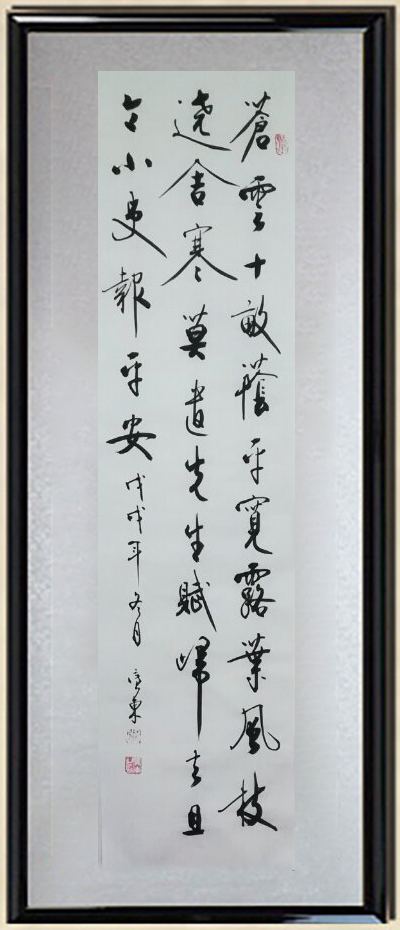 蒼雲十畝蔭平寬露葉風枝
遶舍寒莫遣先生賦歸去且
令小吏報平安
戊戌年冬月